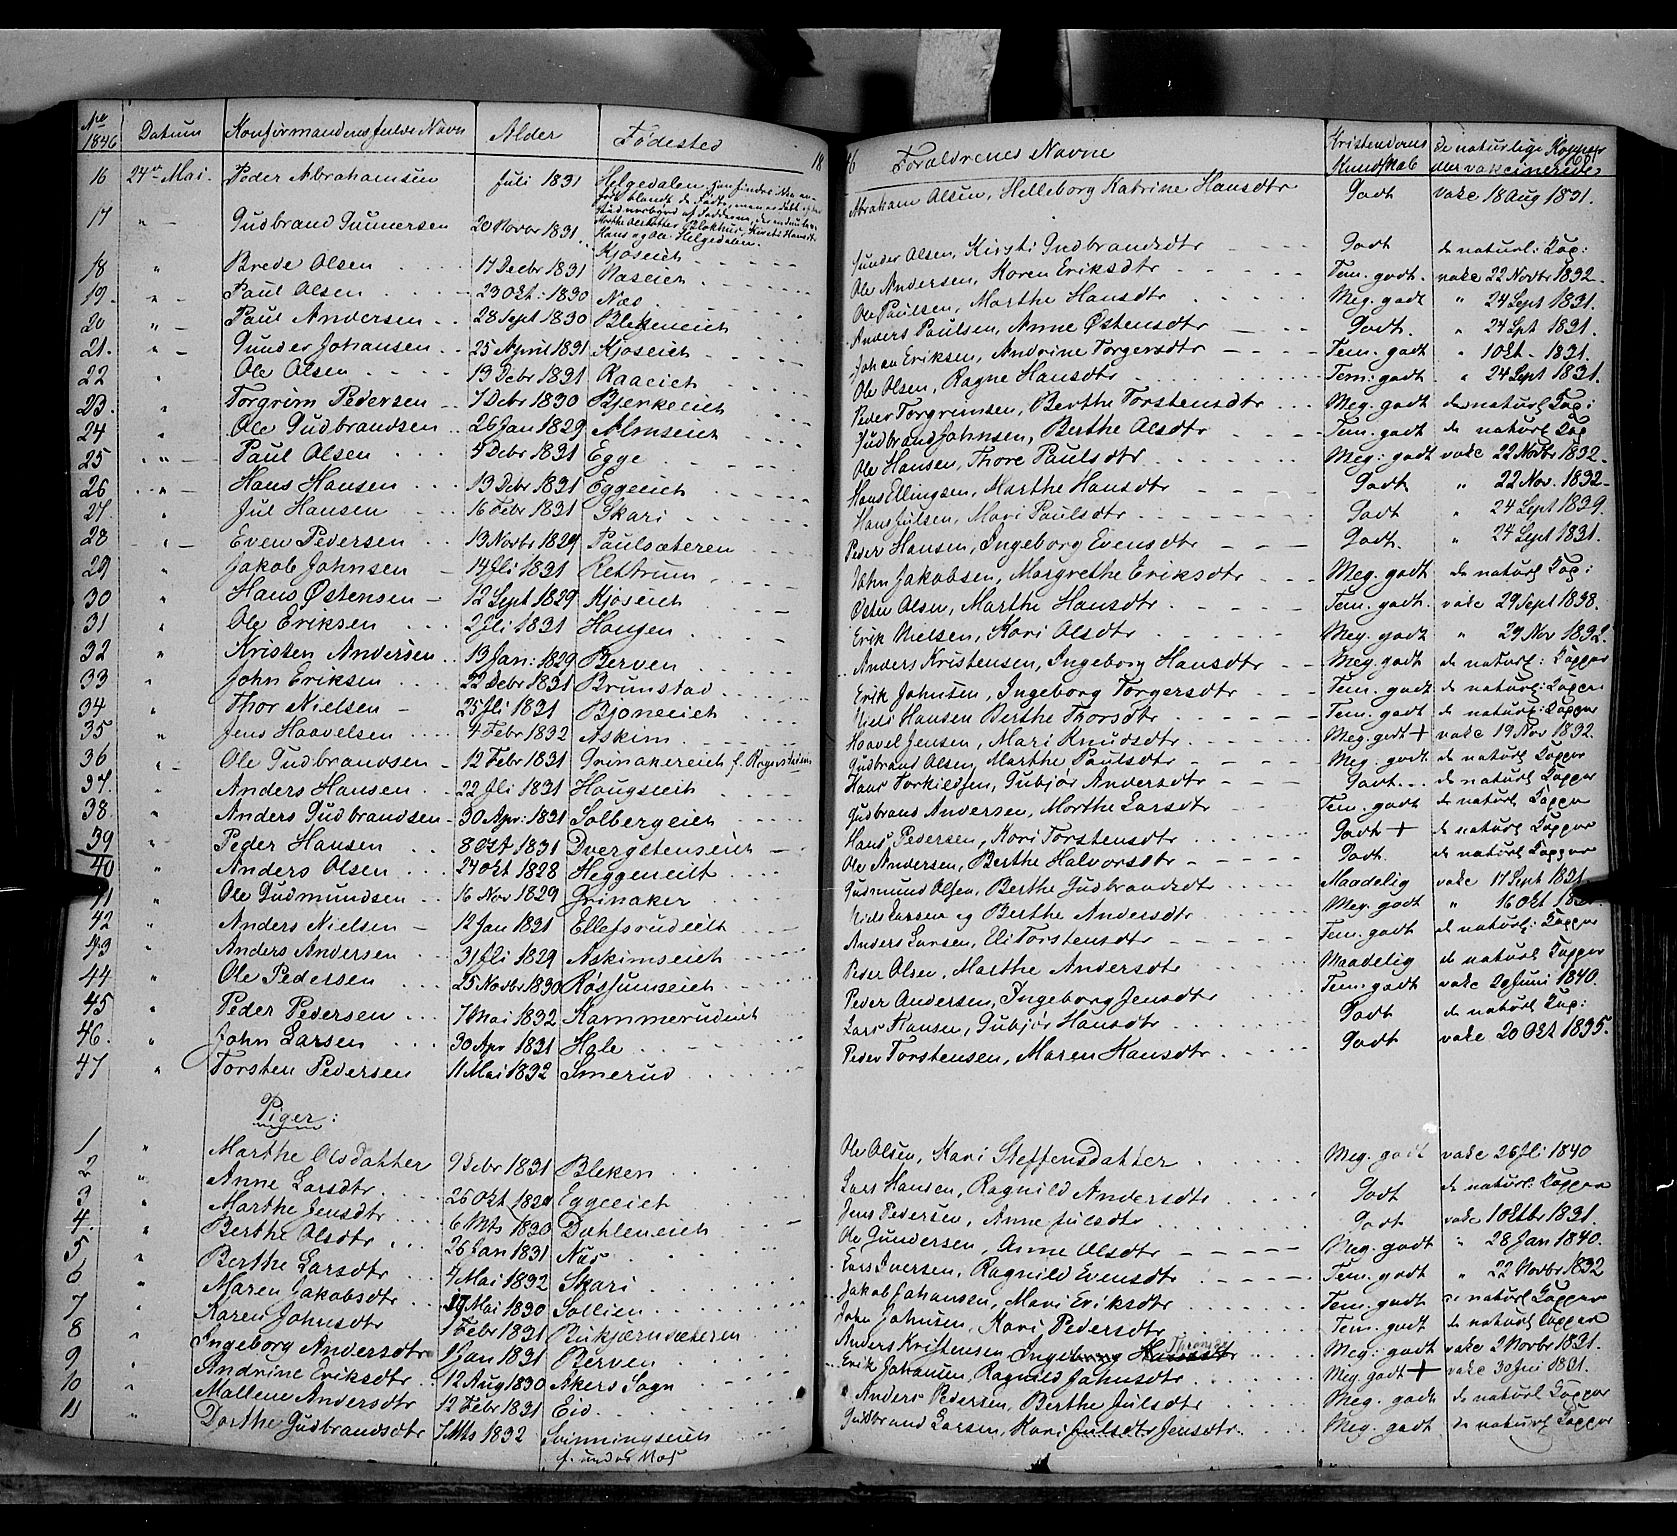 No 1846 Datum Konfirmandens fulde Navn Alder Fødested 18
16 24de Mai. Peder Abrahamsen Juli 1831 Helgedalen
17 " Gudbrand Gunnersen 20 Novbr 1831 Kjoseich
18 " Brede Olsen 17 Decbr 1831 Naseich
19. " Paul Olsen 23 Okt: 1830 Næs
20 " Paul Andersen 28 Sept 1830 Blekeneich
21. " Gunder Johansen 25 April 1831 Kjoseich
22 " Ole Olsen 13 Debr 1831 Raaeich
23. " Torgrim Pedersen 7 Debr 1830 Bjerkeeich
24 " Ole Gudbrandsen 26 Jan 1829 Almseich
25 " Paul Olsen 9 Debr 1831 Egge
26 " Hans Hansen 13 Debr 1831 Eggeeich
27. " Jul Hansen 16 Febr 1831 Skari
28 " Even Pedersen 13 Novbr 1829 Paulsæteren
29 " Jakob Johnsen 14 Jli 1831 Rettrum
30 " Hans Østensen 12 Sept 1829 Kjoseich
31 " Ole Eriksen 2 Jli 1831 Haugen
32 " Kristen Andersen 13 Jan: 1829 Berven
33 " John Eriksen 22 Debr 1831 Brunstad
34 " Thor Nielsen 25 Jli 1831 Bjoneeich
35 " Jens Haavelsen 4 Febr 1832 Askim
36 " Ole Gudbrandsen 12 Febr 1831 Grinakereich f.
37. " Anders Hansen 22 Jli 1831 Haugseich
38. " Anders Gudbrandsen 30 Apr: 1831 Solbergeich
39 " Peder Hansen 8 Okt 1831 Dvergstenseich
40 " Anders Olsen 27 Okt 1828 Heggeneich
41 " Ole Gudmundsen 16 Nov 1829 Grinaker
42 " Anders Nielsen 12 Jan 1831 Ellefsrudeich
43 " Anders Andersen 31 Jli 1829 Askimseich
44 " Ole Pedersen 25 Novbr 1830 Røssumseich
45 " Peder Pedersen 7 Mai 1832 Kammerudeich
46. " John Larsen 30 Apr 1831 Hole
47 " Torsten Pedersen 11 Mai 1832 Smerud
Piger:
1 " Marthe Olsdatter 9 Debr 1831 Bleken
2 " Anne Larsdtr. 26 Okt Eggeeich
3 " Marthe Jensdtr 6 Mts 1830 Dahleneich
4. " Berthe Olsdtr 26 Jan 1831 Næs
5 " Berthe Larsdtr 4 Mai 1832 Skari
6 " Maren Jakobsdtr Mai 1830 Sollien
7 " Karen Johnsdtr 7 Febr 1831
8 " Ingeborg Andersdtr 1 Jan 1831 Berven
9 " Andrine Eriksdtr 12 Aug 1830 Akers Sogn
10 " Mallene Andersdtr 12 Febr 1831 Eid
11 " Dorthe Gudbrandsdtr 7 Mts 1832 Svinningseich
f. under Næs
46 Forældrenes Navne Kristendoms Kundskab de naturlige Kopper eller vakcinerede
Abraham Olsen, Helleborg Katrine Hansdtr Godt vakc 18 Aug 1831.
Gunder Olsen, Kirsti Gudbrandsdtr Godt de naturl: Kop:
Ole Andersen, Karen Eriksdtr Tem. godt. vakc 22 Novbr 1832
Ole Paulsen, Marthe Hansdtr Meg. godt " 24 Sept 1831.
Anders Paulsen, Anne Østensdtr Godt. " 24 Spt 1831.
Johan Eriksen, Andrine Torgersdtr Tem. godt " 1 Okt 1831.
Ole Olsen, Ragne Hansdtr Tem: godt " 24 Sept 1831.
Peder Torgrimsen, Berthe Torstensdtr Meg. godt de naturl Kop:
Gudbrand Johnsen, Berthe Olsdtr Tem. godt de naturl Kop
Ole Hansen, Thore Paulsdtr Meg: godt vakc 22 Novbr 1832
Hans Ellingsen, Marthe Hansdtr Godt " 22 Nov. 1832
Hans Julsen, Mari Paulsdtr Godt " 24 Sept 1839.
Peder Hansen, Ingeborg Evensdtr Godt. " 24 Sept 1831.
John Jakobsen, Margrethe Eriksdtr Meg. godt de naturl Kop:
Østen Olsen, Marthe Hansdtr Tem. godt. vakc 29 Sept 1838.
Erik Nielsen, Kari Olsdtr Meg. godt " 29 Nov 1832.
Anders Kristensen, Ingeborg Hansdtr Meg. godt de naturl: Kopper
Erik Johnsen, Ingeborg Torgersdtr Tem. godt de naturl: Kopper
Niels Hansen Berthe Thorsdtr Tem. godt de naturl: Kopper
Haavel Jensen, Mari Knudsdtr Meg. godt + vakc 19 Nov 1832.
Gudbrand Olsen, Marthe Paulsdtr Meg. godt de naturl Kopper
Hans Torkildsen, Gubjør Andersdtr Godt. de naturl Kopper
Gudbrand Andersen, Marthe Larsdtr Tem. godt de naturl Kopper
Hans Pedersen, Kari Torstensdtr Godt + de naturl Kopper
Ole Andersen, Berthe Halvorsdtr Godt. de naturl Kopper
Gudmund Olsen, Berthe Gudbrandsdtr Maadelig vakc 17 Sept 1831
Niels Larsen og Berthe Andersdtr Meg. godt " 16 Okt
Anders Larsen, Eli Torstensdtr Tem. godt de naturl: Kopper
Peder Olsen, Marthe Andersdtr Maadelig de naturl Kopper
Peder Andersen, Ingeborg Jensdtr Tem. godt vakc 20 Juni 1840.
Lars Hansen, Gubjør Hansdtr Godt de naturl Kop:
Peder Torstensen, Maren Hansdtr Godt vakc 20 Okt 1835.
Ole Olsen, Kari Steffensdatter Meg. godt vakc 26 Jli 1840
Lars Hansen, Ragnild Andersdtr Godt de naturl: Kopper
Jens Pedersen, Anne Julsdtr Godt vakc 1 Oktbr 1831.
Ole Gundersen, Anne Olsdtr Meg. godt " 28 Jan 1840.
Lars Iversen, Ragnild Evensdtr Tem. godt " 22 Novbr 1832
Jakob Johansen, Mari Eriksdtr Tem. godt de naturl Kopper
John Johnsen, Kari Pedersdtr Tem. godt de naturl Kopper
Anders Kristensen, Ingeborg Hansdtr Meg: godt vakc 2 Novbr 1831.
Erik Johansen, Ragnild Johnsdtr Meg. godt + vakc 30 Jni 1831.
Anders Pedersen, Berthe Julsdtr Meg. godt de naturl Kopper
Gudbrand Larsen, Kari Julsdtr Jensdtr Meg. godt de naturl Kopper